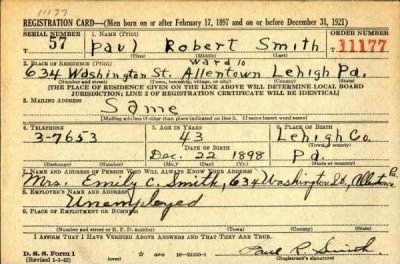 1127
REGISTRATION CARD—(Men born on or after February 17, 1897 and on or before December 31, 1921)
SERIAL NUMBER 1. NAME (Print) ORDER NUMBER
T 57 Paul Robert Smith T 11177
(First) (Middle) (Last)
2. PLACE OF RESIDENCE (Print) Ward 10
634 Washington St. Allentown Lehigh Pa.
(Number and street) (Town, township, village, or city) (County) (State)
[THE PLACE OF RESIDENCE GIVEN ON THE LINE ABOVE WILL DETERMINE LOCAL BOARD
JURISDICTION; LINE 2 OF REGISTRATION CERTIFICATE WILL BE IDENTICAL]
3. MAILING ADDRESS
Same
[Mailing address if other than place indicated on line 2. If same insert word same]
4. TELEPHONE 5. AGE IN YEARS 6. PLACE OF BIRTH
3-7653 43 Lehigh Co.
DATE OF BIRTH (Town or county)
Dec. 22 1898 Pa.
(Exchange) (Number) (Mo.) (Day) (Yr.) (State or country)
7. NAME AND ADDRESS OF PERSON WHO WILL ALWAYS KNOW YOUR ADDRESS
Mrs. Emily C. Smith, 634 Washington St., Allentown Pa.
8. EMPLOYER'S NAME AND ADDRESS
Unemployed
9. PLACE OF EMPLOYMENT OR BUSINESS
(Number and street or R. F. D. number) (Town) (County) (State)
I AFFIRM THAT I HAVE VERIFIED ABOVE ANSWERS AND THAT THEY ARE TRUE.
D. S. S. Form 1
(Revised 1-1-42) (over) GPO 16-21630-1 Paul R. Smith
(Registrant's signature)